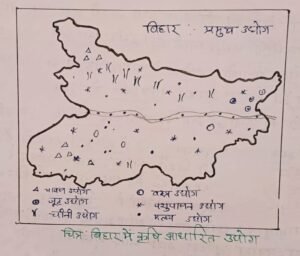 बिहार : प्रमुख उद्योग
चावल उद्योग
वस्त्र उद्योग
जूट उद्योग
पशुपालन उद्योग
चीनी उद्योग
मत्स्य उद्योग
चित्र बिहार में कृषि आधारित उद्योग